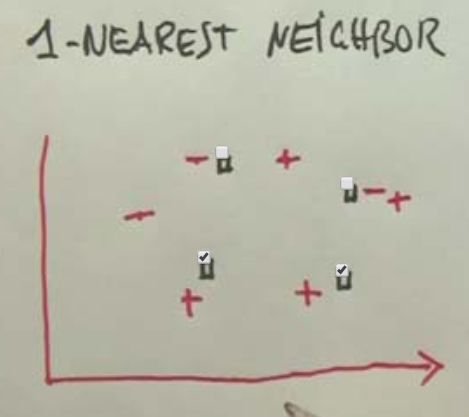 1-NEAREST NEIGHBOR